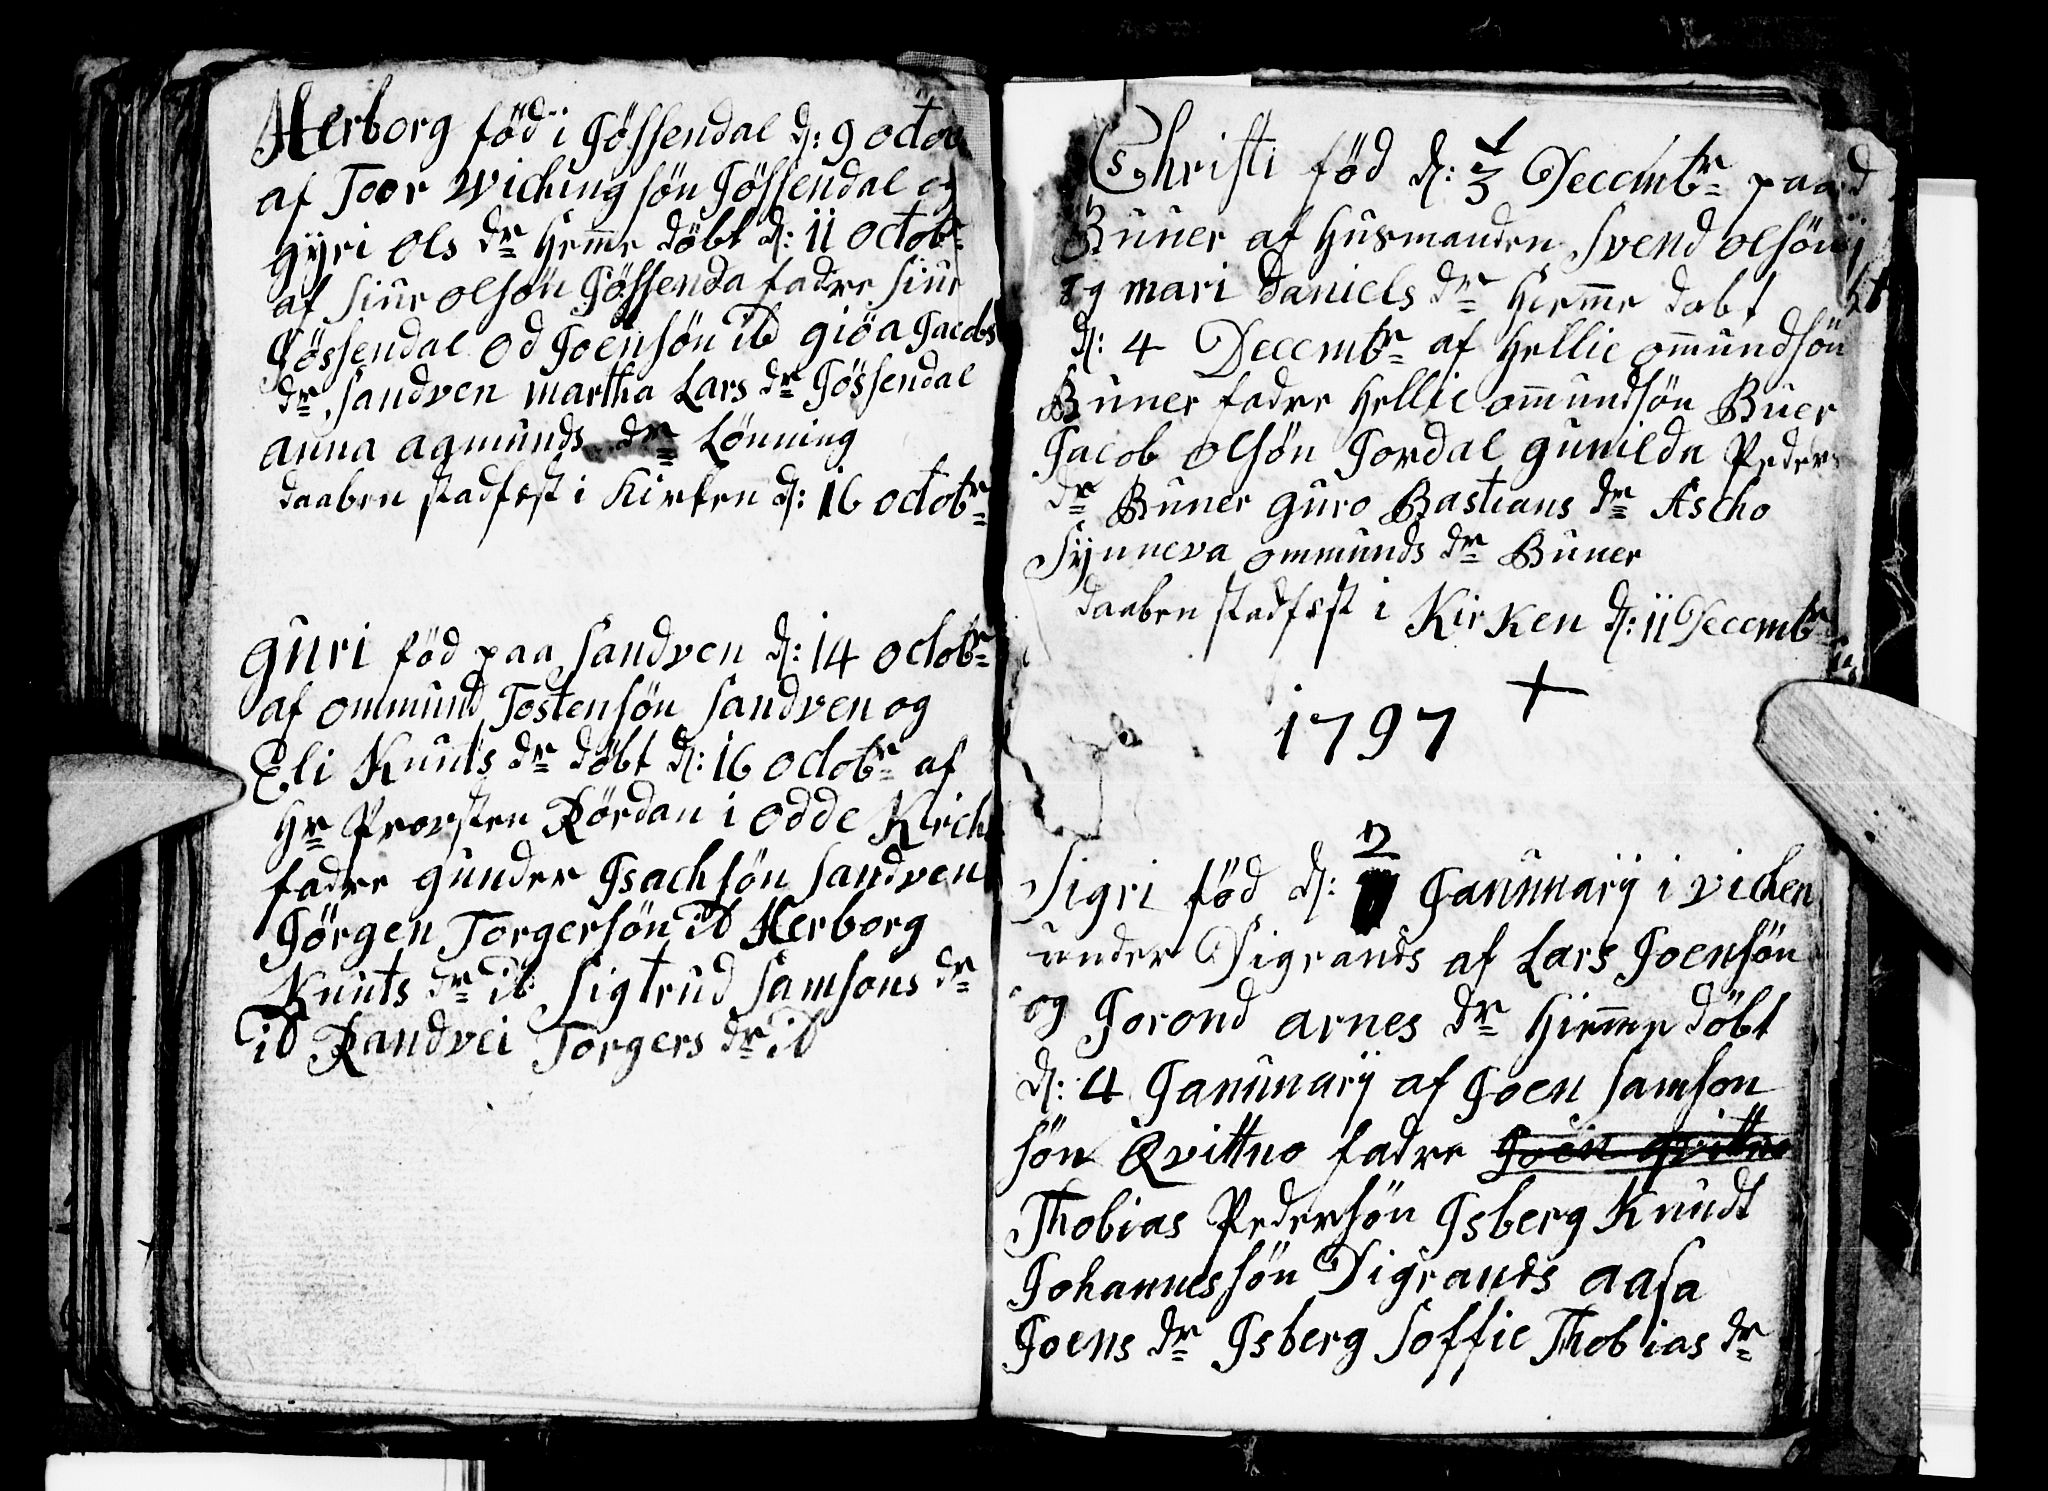 Herborg föd i Jössendal d: 9 octob
af Toor Wiching sön Jössendal og
gyri Ols dr hieme döbt d: 11 octobr
af Siur olsön Jössenda fadre Siur
Jössendal Od Joensön ib giöa Jacobs
dr Sandven martha Lars dr Jössendal
anna agmunds dr Lönning
daaben stadfest i Kirken d: 16 octobr
guri föd paa Sandven d: 14 octobr
af ommund Tostensön Sandven og
Eli Knuts dr döbt d: 16 octobr af
Hr Provsten Rördan i Odde Kirch
fadre gunder Isachsön Sandven
Jörgen Torgersön ib Herborg
Knuts dr ib Sigtrud Samsons dr
ib Randvei Torgers dr ib
Christi föd d: 3 Decembr paa
Buuer af Husmanden Svend olsön
og mari Daniels dr hieme dobt
d: 4 Decembr af Hellie omundsön
Buuer fadre Hellie omundsön Buer
Jacob Olsön Jordal gunilda Peders
dr Buuer guro Bastians dr Ascho
Synneva ommunds dr Buuer
daaben stadfest i Kirken d: 11 Decembr
1797 +
Sigri föd d: 2 Januuarij i vichen
under Digranes af Lars Joensön
og Jorond arnes dr hieme döbt
d: 4 Januuarij af Joen Samson
sön Qvittno fadre Joen Qvittno
Thobias Pedersön Isberg Knudt
Johannessön Digranes aasa
Joens dr Isberg Soffie Thobias dr